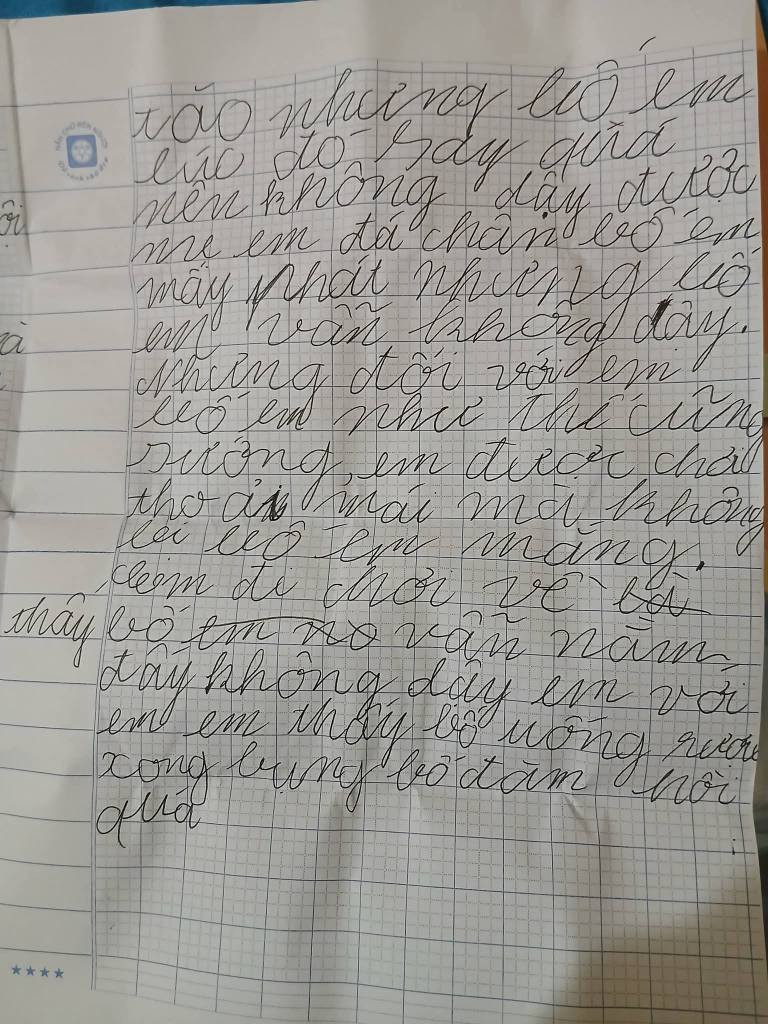 xão nhưng bố em
lúc đó say quá
nên không dậy được
mẹ em đá chân bố em
mấy phát nhưng bố
em vẫn không dậy.
Nhưng đối với em
bố em như thế cũng
sướng, em được chơi
thoải mái mà không
bị bố em mắng.
đi chơi về
thấy bố em vẫn nằm
đấy không dậy em với
em em thấy bố uống rượu
xong bụng bố đàm hồi
quá